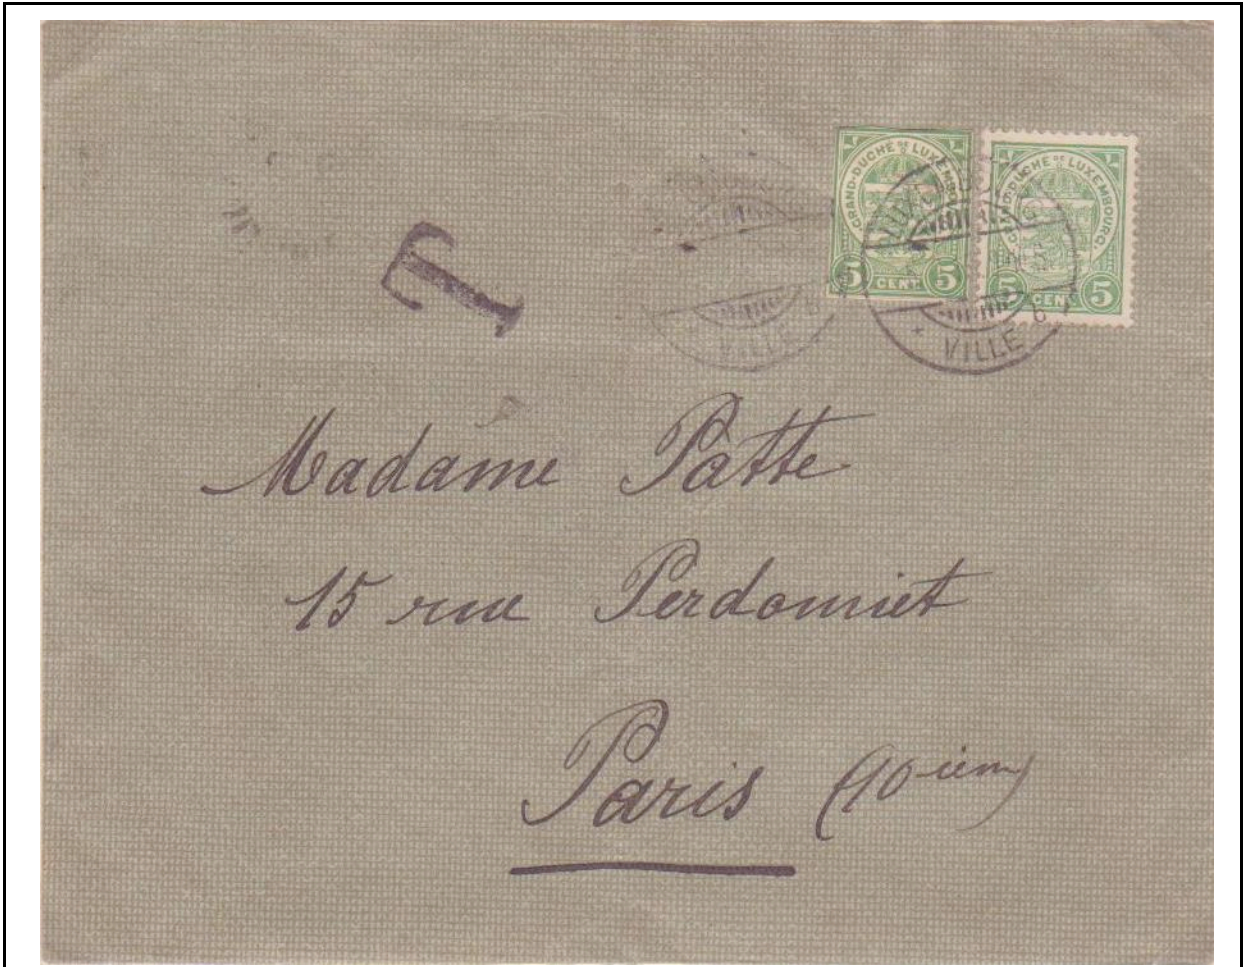 GRAND-DUCHÉ DE LUXEMBOURG
5 CENT 5
GRAND-DUCHÉ DE LUXEMBOURG
5 CENT 5
VILLE
b
VILLE
b
T
Madame Patte
15 rue Perdonniet
Paris (10 ièm)